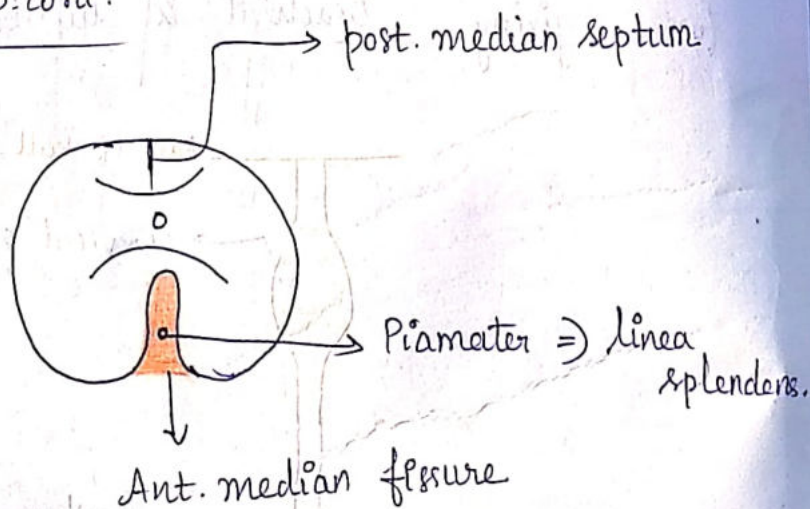 post. median septum
Piamater ⇒ linea
splendens.
Ant. median fissure